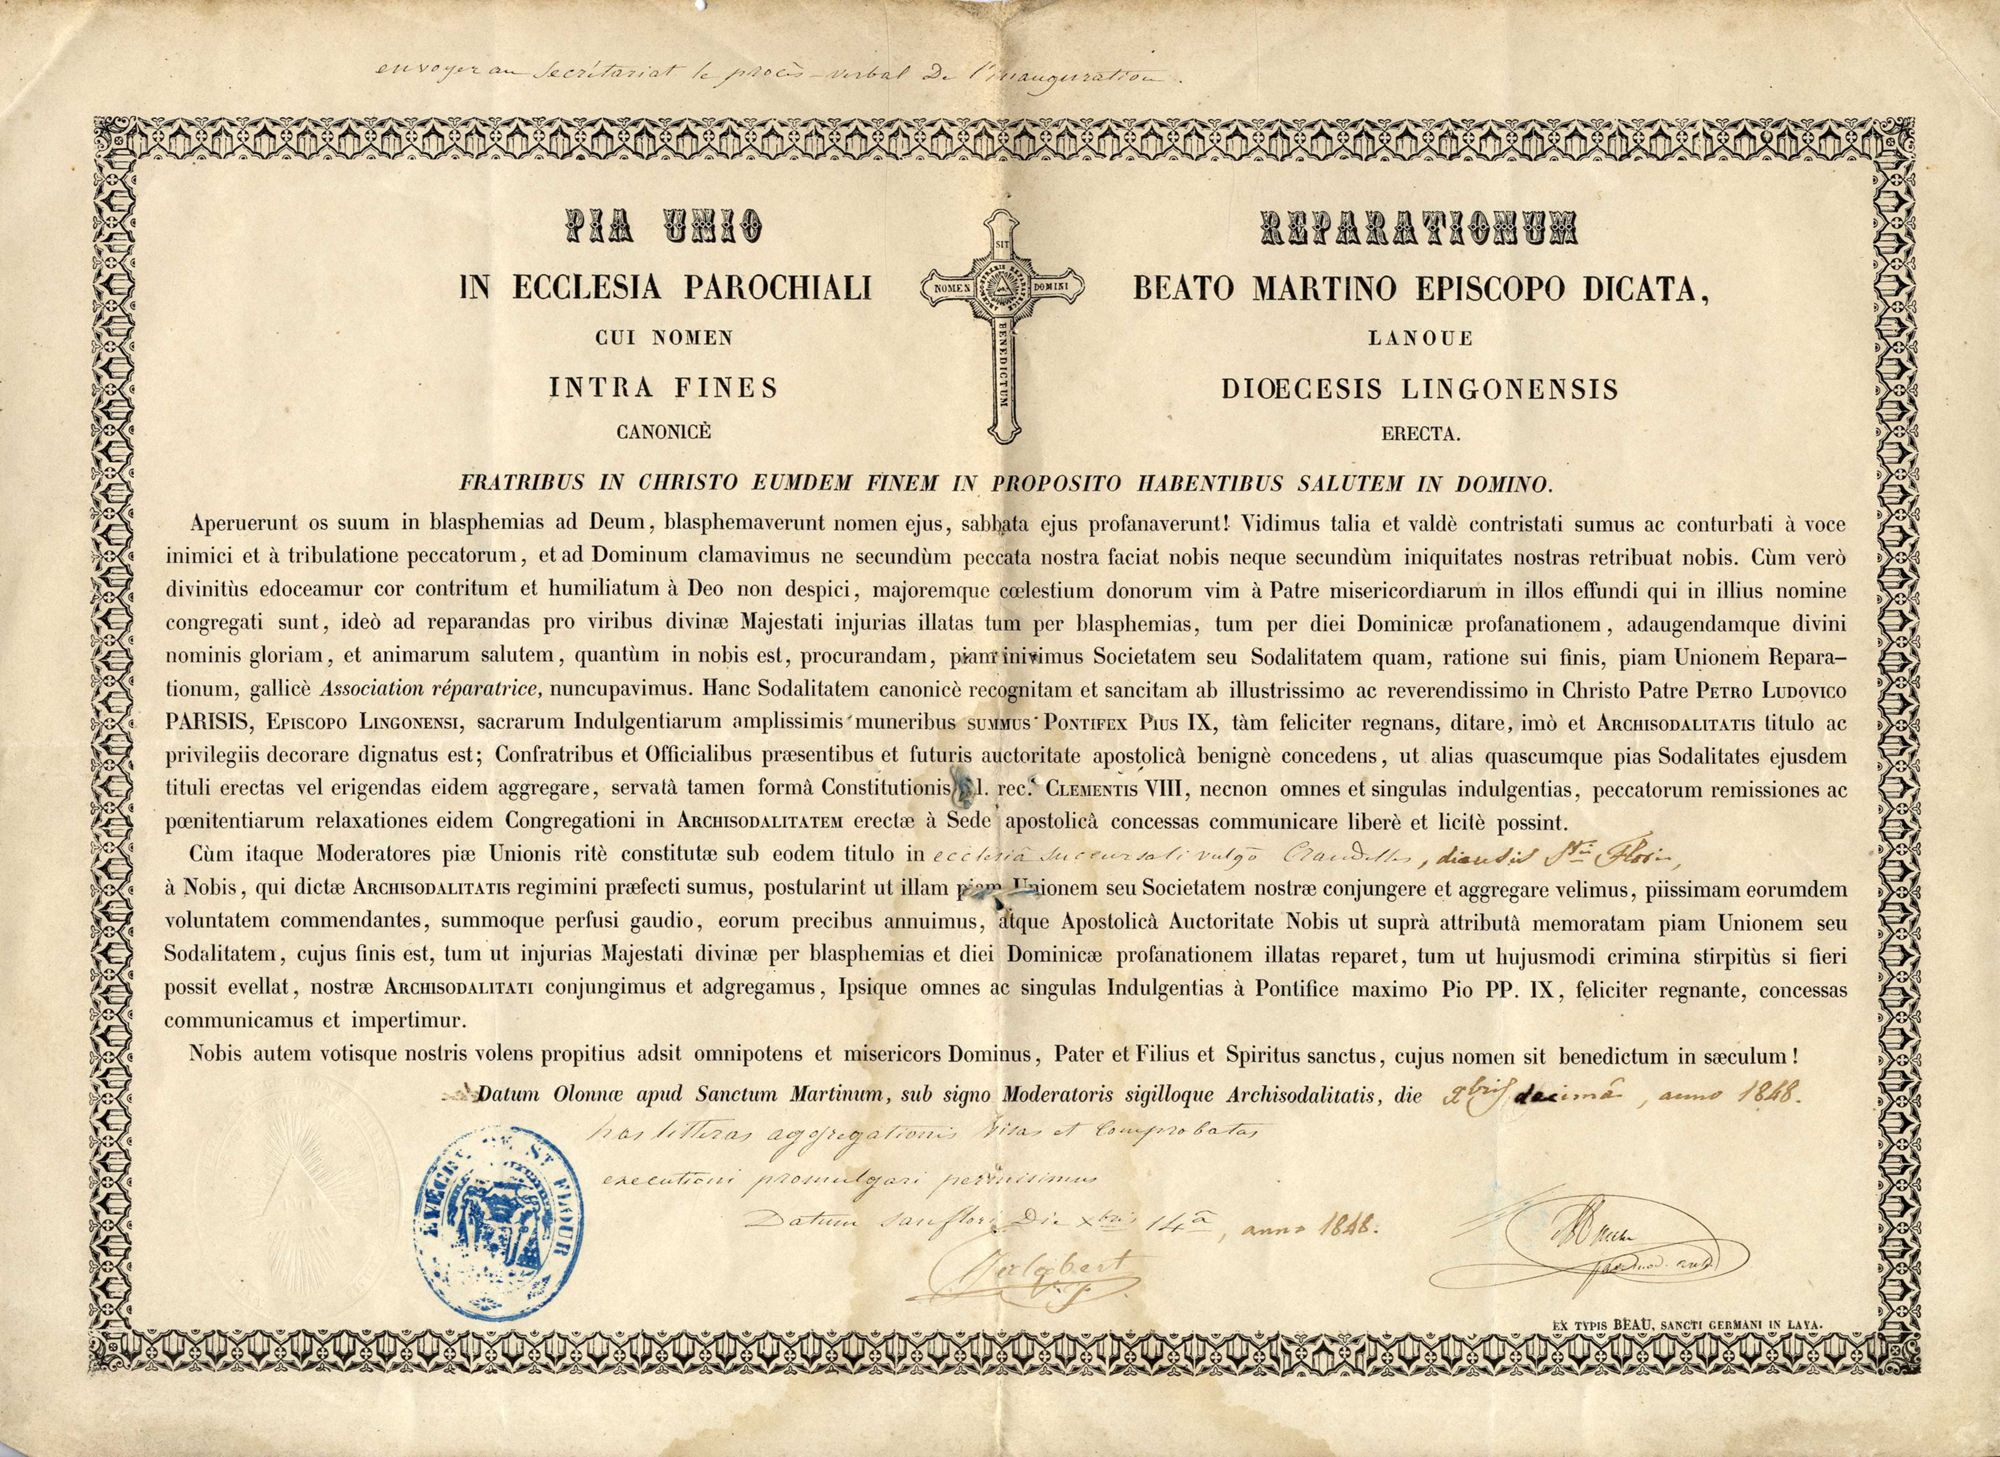 envoyer au Secrétariat le procès-verbal De l'inauguration.
PIA UNIO REPARATIONUM
IN ECCLESIA PAROCHIALI BEATO MARTINO EPISCOPO DICATA,
CUI NOMEN LANOUE
INTRA FINES DIŒCESIS LINGONENSIS
CANONICÈ ERECTA.
SIT
NOMEN DOMINI
BENEDICTUM
FRATRIBUS IN CHRISTO EUMDEM FINEM IN PROPOSITO HABENTIBUS SALUTEM IN DOMINO.
Aperuerunt os suum in blasphemias ad Deum, blasphemaverunt nomen ejus, sabbata ejus profanaverunt! Vidimus talia et valdè contristati sumus ac conturbati à voce
inimici et à tribulatione peccatorum, et ad Dominum clamavimus ne secundùm peccata nostra faciat nobis neque secundùm iniquitates nostras retribuat nobis. Cùm verò
divinitùs edoceamur cor contritum et humiliatum à Deo non despici, majoremque cœlestium donorum vim à Patre misericordiarum in illos effundi qui in illius nomine
congregati sunt, ideò ad reparandas pro viribus divinæ Majestati injurias illatas tum per blasphemias, tum per diei Dominicæ profanationem, adaugendamque divini
nominis gloriam, et animarum salutem, quantùm in nobis est, procurandam, piam inivimus Societatem seu Sodalitatem quam, ratione sui finis, piam Unionem Repara-
tionum, gallicè Association réparatrice, nuncupavimus. Hanc Sodalitatem canonicè recognitam et sancitam ab illustrissimo ac reverendissimo in Christo Patre PETRO LUDOVICO
PARISIS, EPISCOPO LINGONENSI, sacrarum Indulgentiarum amplissimis muneribus SUMMUS PONTIFEX PIUS IX, tàm feliciter regnans, ditare, imò et ARCHISODALITATIS titulo ac
privilegiis decorare dignatus est; Confratribus et Officialibus præsentibus et futuris auctoritate apostolicâ benignè concedens, ut alias quascumque pias Sodalitates ejusdem
tituli erectas vel erigendas eidem aggregare, servatâ tamen formâ Constitutionis fel. rec. CLEMENTIS VIII, necnon omnes et singulas indulgentias, peccatorum remissiones ac
pœnitentiarum relaxationes eidem Congregationi in ARCHISODALITATEM erectæ à Sede apostolicâ concessas communicare liberè et licitè possint.
Cùm itaque Moderatores piæ Unionis ritè constitutæ sub eodem titulo in ecclesiâ succursali vulgò Crandelles, diœcesis Sti Flori,
à Nobis, qui dictæ ARCHISODALITATIS regimini præfecti sumus, postularint ut illam piam Unionem seu Societatem nostræ conjungere et aggregare velimus, piissimam eorumdem
voluntatem commendantes, summoque perfusi gaudio, eorum precibus annuimus, atque Apostolicâ Auctoritate Nobis ut suprà attributâ memoratam piam Unionem seu
Sodalitatem, cujus finis est, tum ut injurias Majestati divinæ per blasphemias et diei Dominicæ profanationem illatas reparet, tum ut hujusmodi crimina stirpitùs si fieri
possit evellat, nostræ ARCHISODALITATI conjungimus et adgregamus, Ipsique omnes ac singulas Indulgentias à Pontifice maximo Pio PP. IX, feliciter regnante, concessas
communicamus et impertimur.
Nobis autem votisque nostris volens propitius adsit omnipotens et misericors Dominus, Pater et Filius et Spiritus sanctus, cujus nomen sit benedictum in sæculum!
Datum Olonnæ apud Sanctum Martinum, sub signo Moderatoris sigilloque Archisodalitatis, die Xbris decimâ, anno 1848.
has litteras aggregationis visas et comprobatas
executioni promulgari permisimus
Datum sanflori Die Xbris 14â, anno 1848.
ÉVÊCHÉ DE ST FLOUR
EX TYPIS BEAU, SANCTI GERMANI IN LAYA.